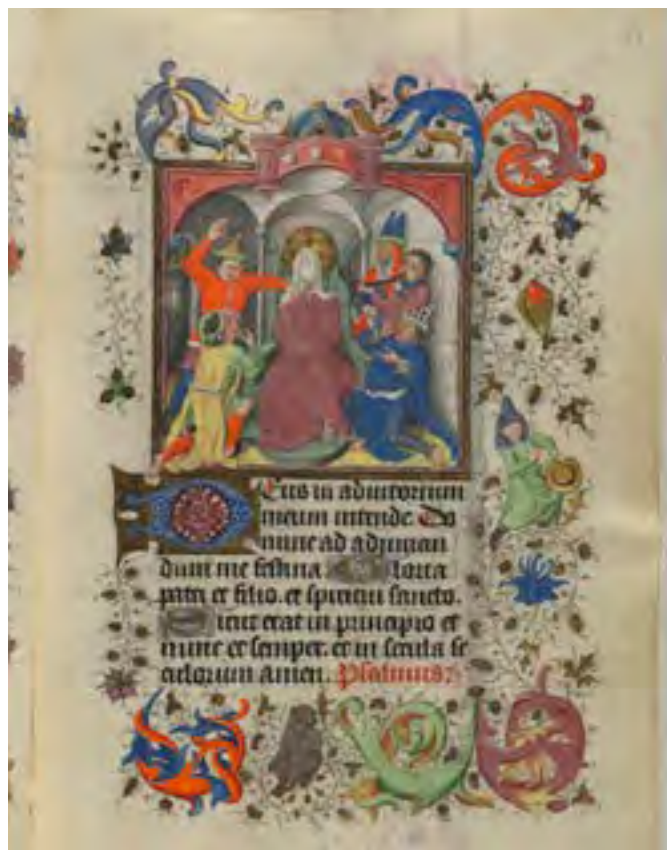 Deus in adiutorium
meum intende. Do
mine ad adiuuan
dum me festina. Gloria
patri et filio. et spiritui sancto.
Sicut erat in principio et
nunc et semper. et in secula se
culorum amen. Psalmus.